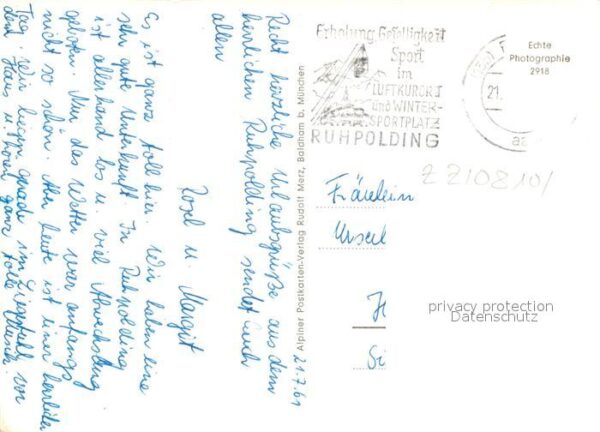 21.7.61
Recht herzliche Urlaubsgrüße aus dem
herrlichen Ruhpolding sendet Euch
allen
Rosel u. Margit
Es ist ganz toll hier. Wir haben eine
sehr gute Unterkunft. In Ruhpolding
ist allerhand los u. viel Abwechslung
geboten. Nur das Wetter war anfangs
nicht so schön. Aber heute ist einer herrlicher
Tag. Wir liegen gerade im Liegestuhl vor
dem Haus u. hören ganz tolle Musik.
Alpiner Postkarten-Verlag Rudolf Merz, Baldham b. München
Erholung Geselligkeit
Sport
im
LUFTKURORT
und WINTER-
SPORTPLATZ
RUHPOLDING
21.
Echte
Photographie
2918
Z210810/
Fräulein
privacy protection
Datenschutz